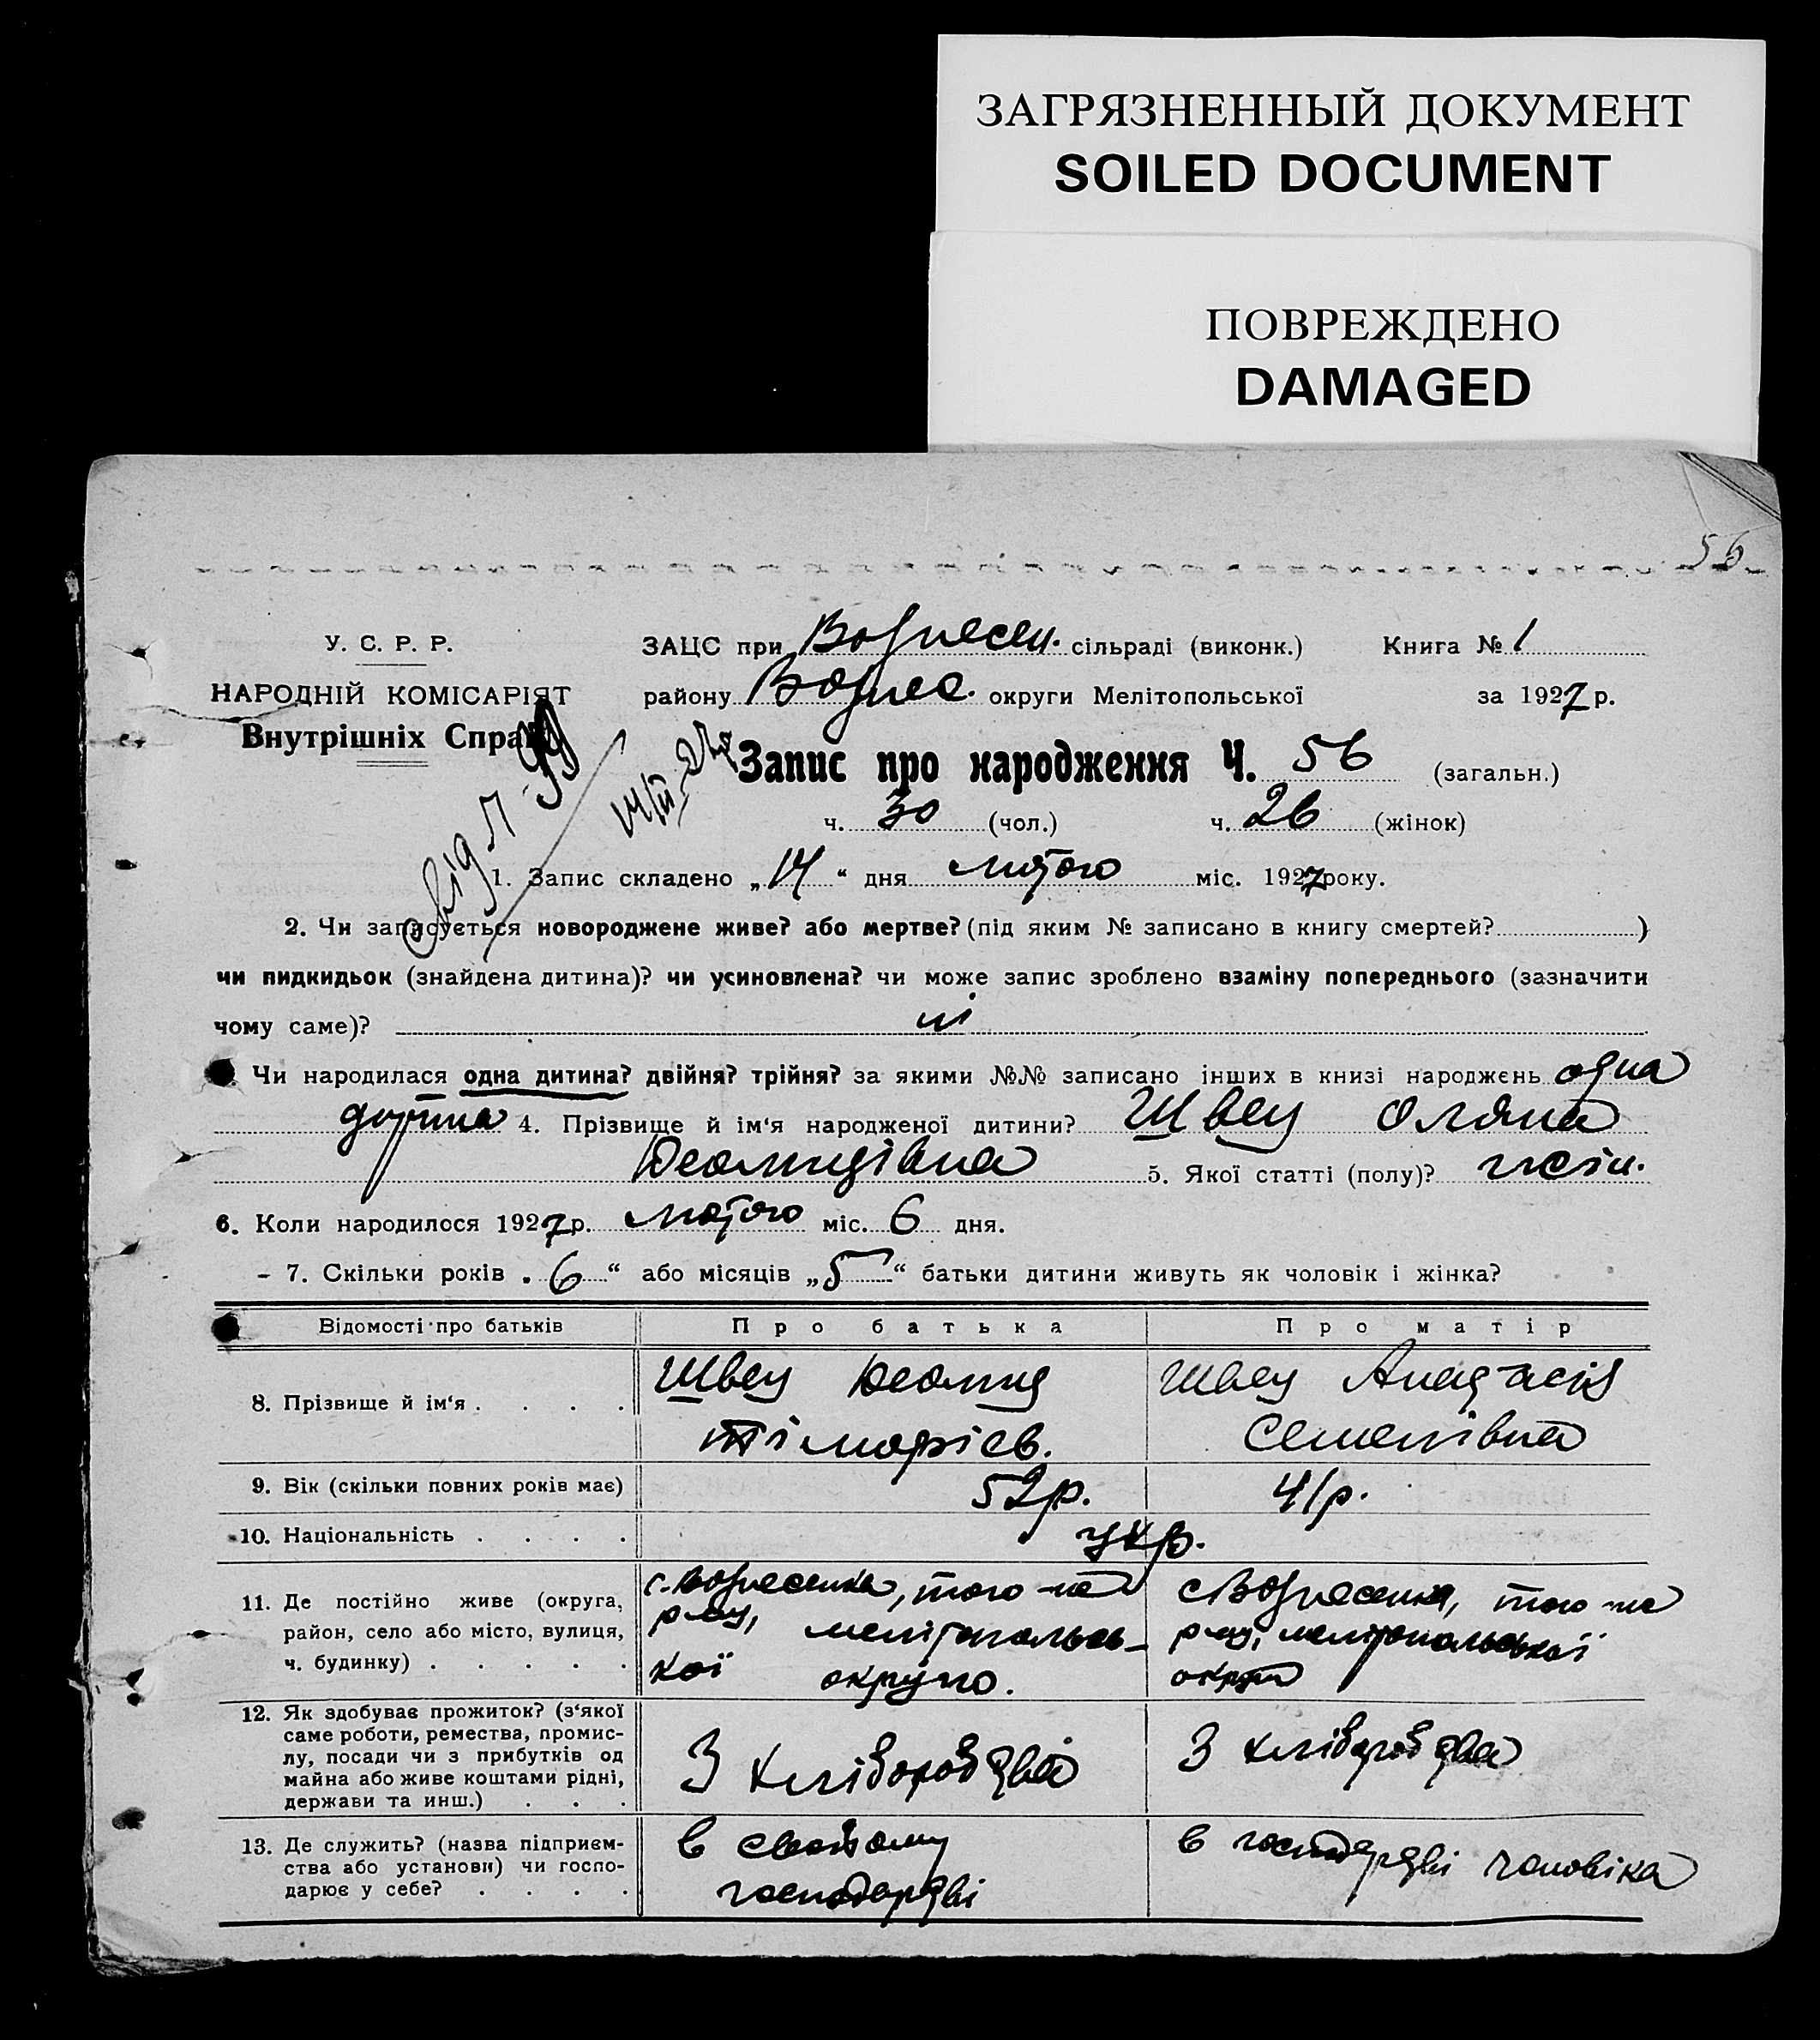 ЗАГРЯЗНЕННЫЙ ДОКУМЕНТ
SOILED DOCUMENT
ПОВРЕЖДЕНО
DAMAGED
56
У. С. Р. Р.
НАРОДНІЙ КОМІСАРІЯТ
Внутрішніх Справ
ЗАЦС при Вознесен. сільраді (виконк.) Книга № 1
району Вознес. округи Мелітопольської за 1927 р.
Запис про народження Ч. 56 (загальн.)
ч. 30 (чол.) ч. 26 (жінок)
1. Запис складено „14“ дня лютого міс. 1927 року.
2. Чи записується новороджене живе? або мертве? (під яким № записано в книгу смертей? )
чи пидкидьок (знайдена дитина)? чи усиновлена? чи може запис зроблено взаміну попереднього (зазначити
чому саме)? ні
Чи народилася одна дитина? двійня? трійня? за якими №№ записано інших в книзі народжень одна
дитина 4. Прізвище й ім‘я народженої дитини? Швец Оляна
5. Якої статті (полу)? жін.
6. Коли народилося 1927 р. лютого міс. 6 дня.
7. Скільки років „6“ або місяців „5“ батьки дитини живуть як чоловік і жінка?
Відомості про батьків Про батька Про матір
8. Прізвище й ім‘я . . . . Швец Швец Анастасія
Семенівна
9. Вік (скільки повних років має) 52 р. 41 р.
10. Національність . . . . укр.
11. Де постійно живе (округа,
район, село або місто, вулиця,
ч. будинку) . . . . .
с. Вознесенка, того-же
р-ну, мелітопольсь-
кої округи.
с Вознесенка, того-же
р-ну, мелітопольської
округи
12. Як здобуває прожиток? (з‘якої
саме роботи, ремества, промис-
лу, посади чи з прибутків од
майна або живе коштами рідні,
держави та инш.) . . .
З хліборобства
З хліборобства
13. Де служить? (назва підприєм-
ства або установи) чи госпо-
дарює у себе? . . . .
в своєому
господарстві
в господарстві чоловіка